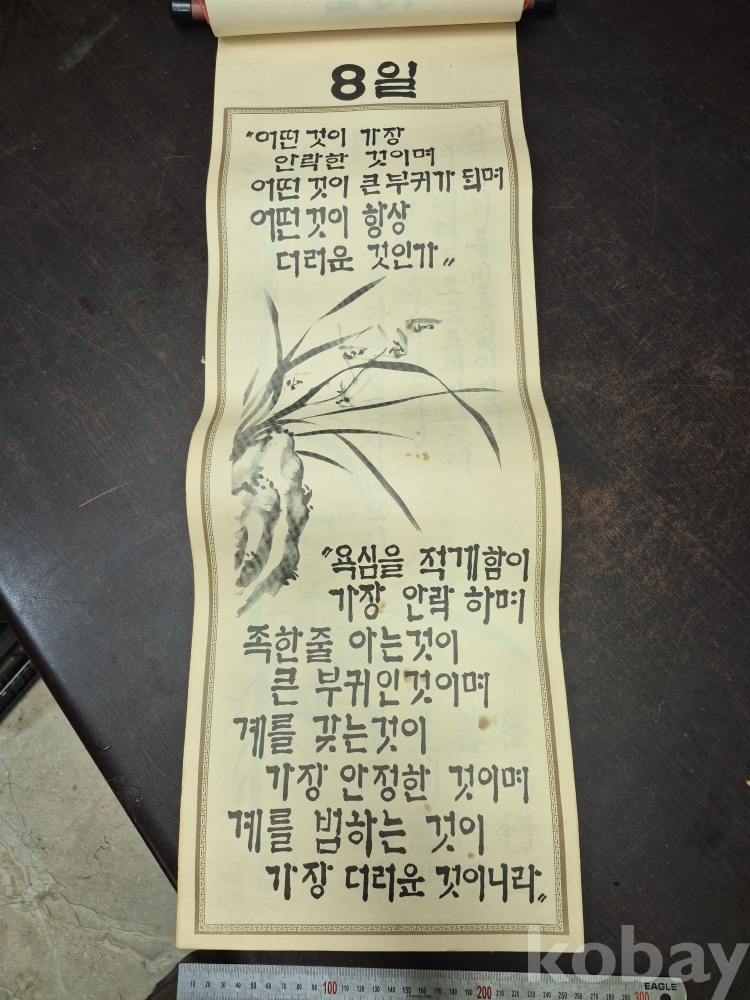 8일
"어떤 것이 가장
안락한 것이며
어떤 것이 큰 부귀가 되며
어떤것이 항상
더러운 것인가"
"욕심을 적게함이
가장 안락 하며
족한줄 아는것이
큰 부귀인것이며
계를 갖는것이
가장 안정한 것이며
계를 범하는 것이
가장 더러운 것이니라"
kobay
10 20 30 40 50 60 70 80 90 100 110 120 130 140 150 160 170 180 190 200 210 220 230 240 250 260 270 280 290 300
EAGLE